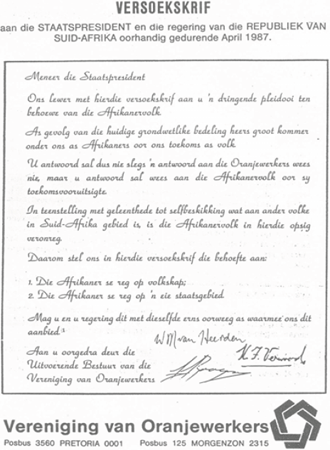 VERSOEKSKRIF
aan die STAATSPRESIDENT en die regering van die REPUBLIEK VAN
SUID-AFRIKA oorhandig gedurende April 1987.
Meneer die Staatspresident
Ons lewer met hierdie versoekskrif aan u 'n dringende pleidooi ten
behoewe van die Afrikanervolk
As gevolg van die huidige grondwetlike bedeling heers groot kommer
onder ons as Afrikaners oor ons toekoms as volk
U antwoord sal dus nie slegs 'n antwoord aan die Oranjewerkers wees
nie, maar u antwoord sal wees aan die Afrikanervolk oor sy
toekomsvooruitsigte.
In teenstelling met geleenthede tot selfbeskikking wat aan ander volke
in Suid-Afrika gebied is, is die Afrikanervolk in hierdie opsig
veronreg.
Daarom stel ons in hierdie versoekskrif die behoefte aan:
1. Die Afrikaner se reg op volkskap;
2. Die Afrikaner se reg op 'n eie staatsgebied
Mag u en u regering dit met dieselfde erns oorweeg as waarmee ons dit
aanbied
W M van Heerden
H. F. Verwoerd
Aan u oorgedra deur die
Uitvoerende Bestuur van die
Vereniging van Oranjewerkers
Vereniging van Oranjewerkers
Posbus 3560 PRETORIA 0001 Posbus 125 MORGENZON 2315